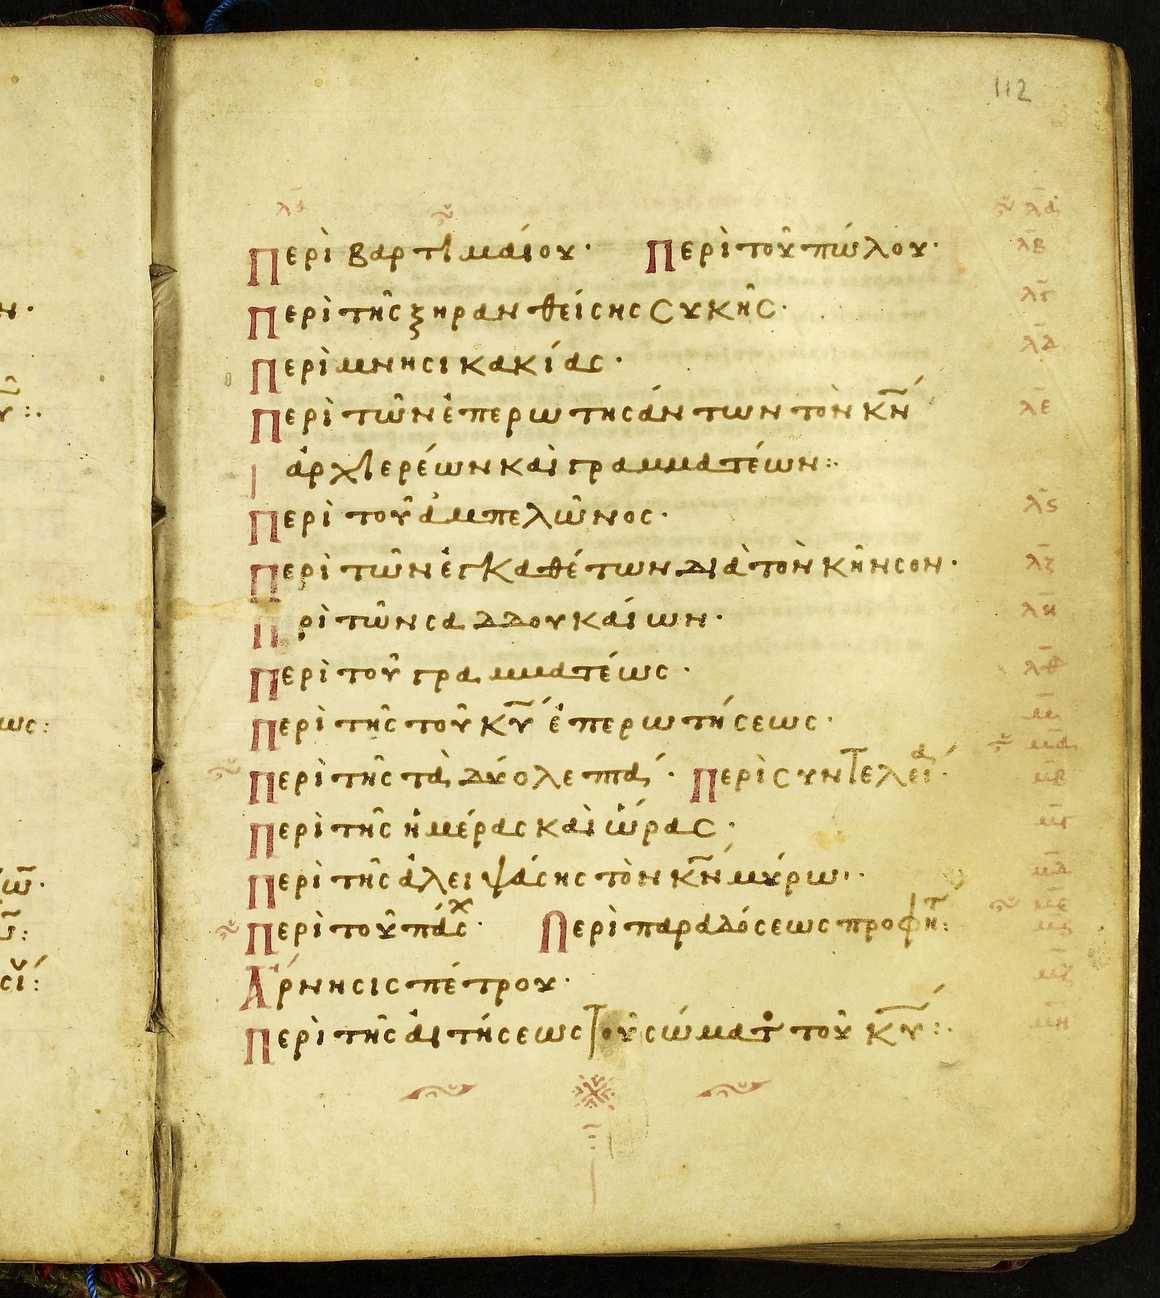 112
Περὶ βαρτιμαίου· Περὶ τοῦ πώλου· λβ
Περὶ τῆς ξηρανθείσης συκῆς· λγ
Περὶ μνησικακίας· λδ
Περὶ τῶν ἐπερωτησάντων τὸν κ̅ν̅ λε
ἀρχιερέων καὶ γραμματέων:·
Περὶ τοῦ ἀμπελῶνος· λς
Περὶ τῶν ἐγκαθέτων διὰ τὸν κῆνσον· λζ
Π ρὶ τῶν σαδδουκαίων· λη
Περὶ τοῦ γραμματέως· λθ
Περὶ τῆς τοῦ κ̅υ̅ ἐπερωτήσεως·
Περὶ τῆς τὰ δύο λεπτά· Περὶ συντελεί ͣ· μβ
Περὶ τῆς ἡμέρας καὶ ὥρας· μγ
Περὶ τῆς ἀλειψάσης τὸν κ̅ν̅ μύρω· μδ
Περὶ τοῦ πάσχ· Περὶ παραδόσεως προφητ:
Ἄρνησις πέτρου·
Περὶ τῆς αἰτήσεως τοῦ σώματο τοῦ κ̅υ̅:· μη